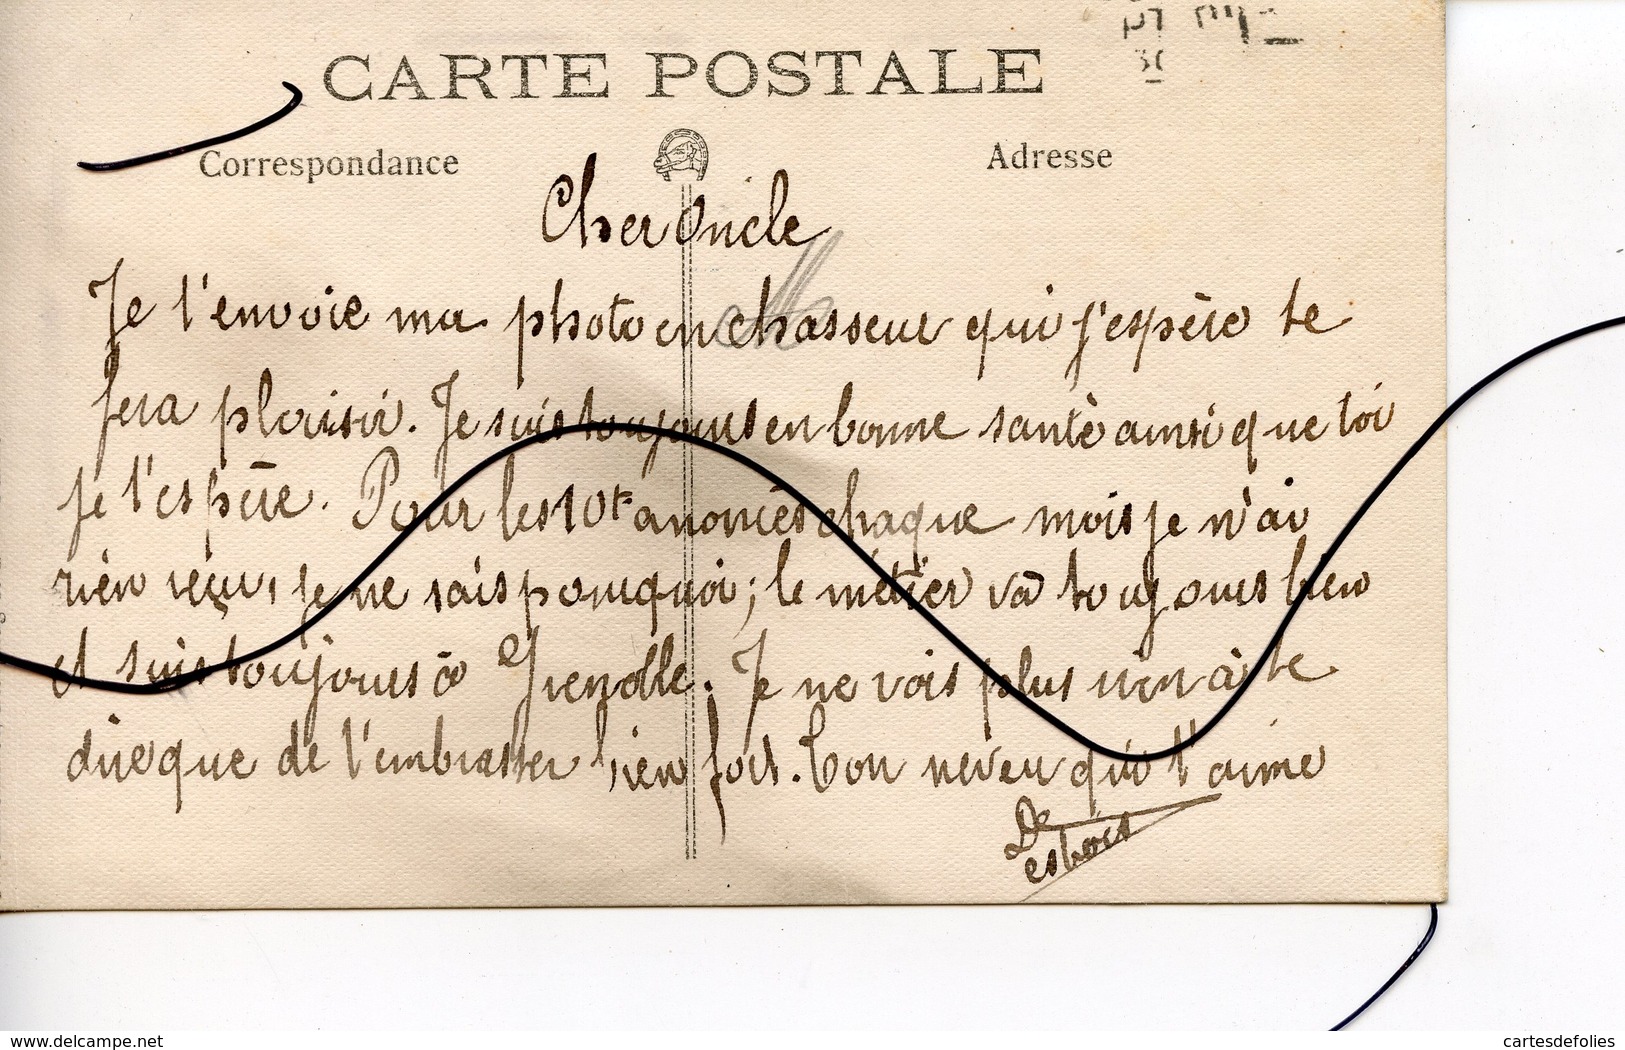 CARTE POSTALE
Correspondance
Adresse
Cher Oncle
Je t'envoie ma photo en chasseur qui j'espère te
fera plaisir. Je suis toujours en bonne santè ainsi que toi
je l'espère. Pour les 10f anoncès chaque mois je n'ai
rien reçu, je ne sais pourquoi; le métier va toujours bien
et suis toujours à Grenoble. Je ne vois plus rien à te
dire que de t'embrasser bien fort. Ton neveu qui t'aime
www.delcampe.net
cartesdefolies